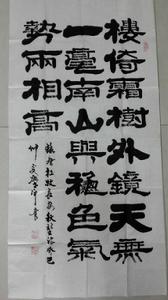 樓倚霜樹外鏡天無
一毫南山與穐色氣
勢兩相高
杜牧長安秋
書